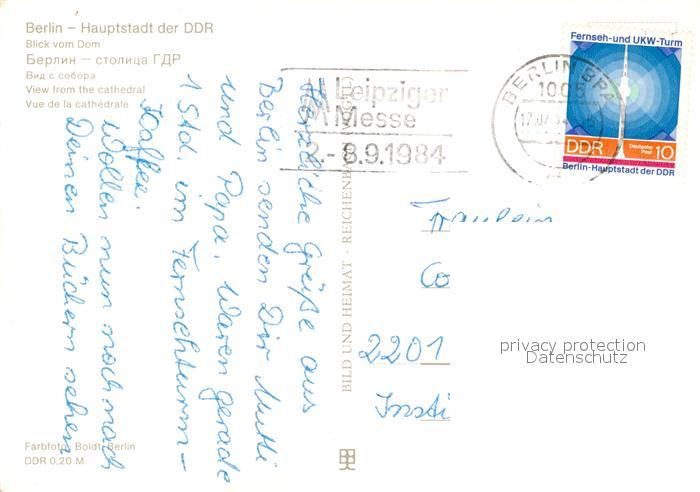 Berlin – Hauptstadt der DDR
Blick vom Dom
Берлин — столица ГДР
Вид с собора
View from the cathedral
Vue de la cathédrale
Herzliche Grüße aus
Berlin senden Dir Mutti
und Papa. Waren gerade
1 Std. im Fernsehturm-
Kaffee.
Wollen nun noch nach
Deinen Büchern sehen
Farbfoto: Boldt, Berlin
DDR 0,20 M
BILD UND HEIMAT · REICHENBACH
Leipziger
Messe
- 8.9.1984
BERLIN BPA
1005
Fernseh-und UKW-Turm
DDR
Deutsche Post
10
Berlin-Hauptstadt der DDR
Fräulein
Co
2201
Insti
privacy protection
Datenschutz